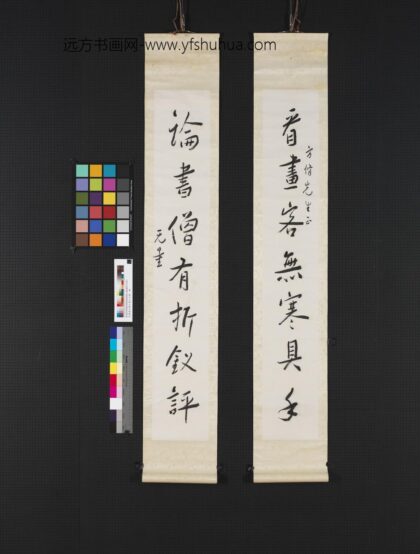 远方书画网-www.yfshuhua.com
看畫客無寒具手
先生正
論書僧有折釵評
元